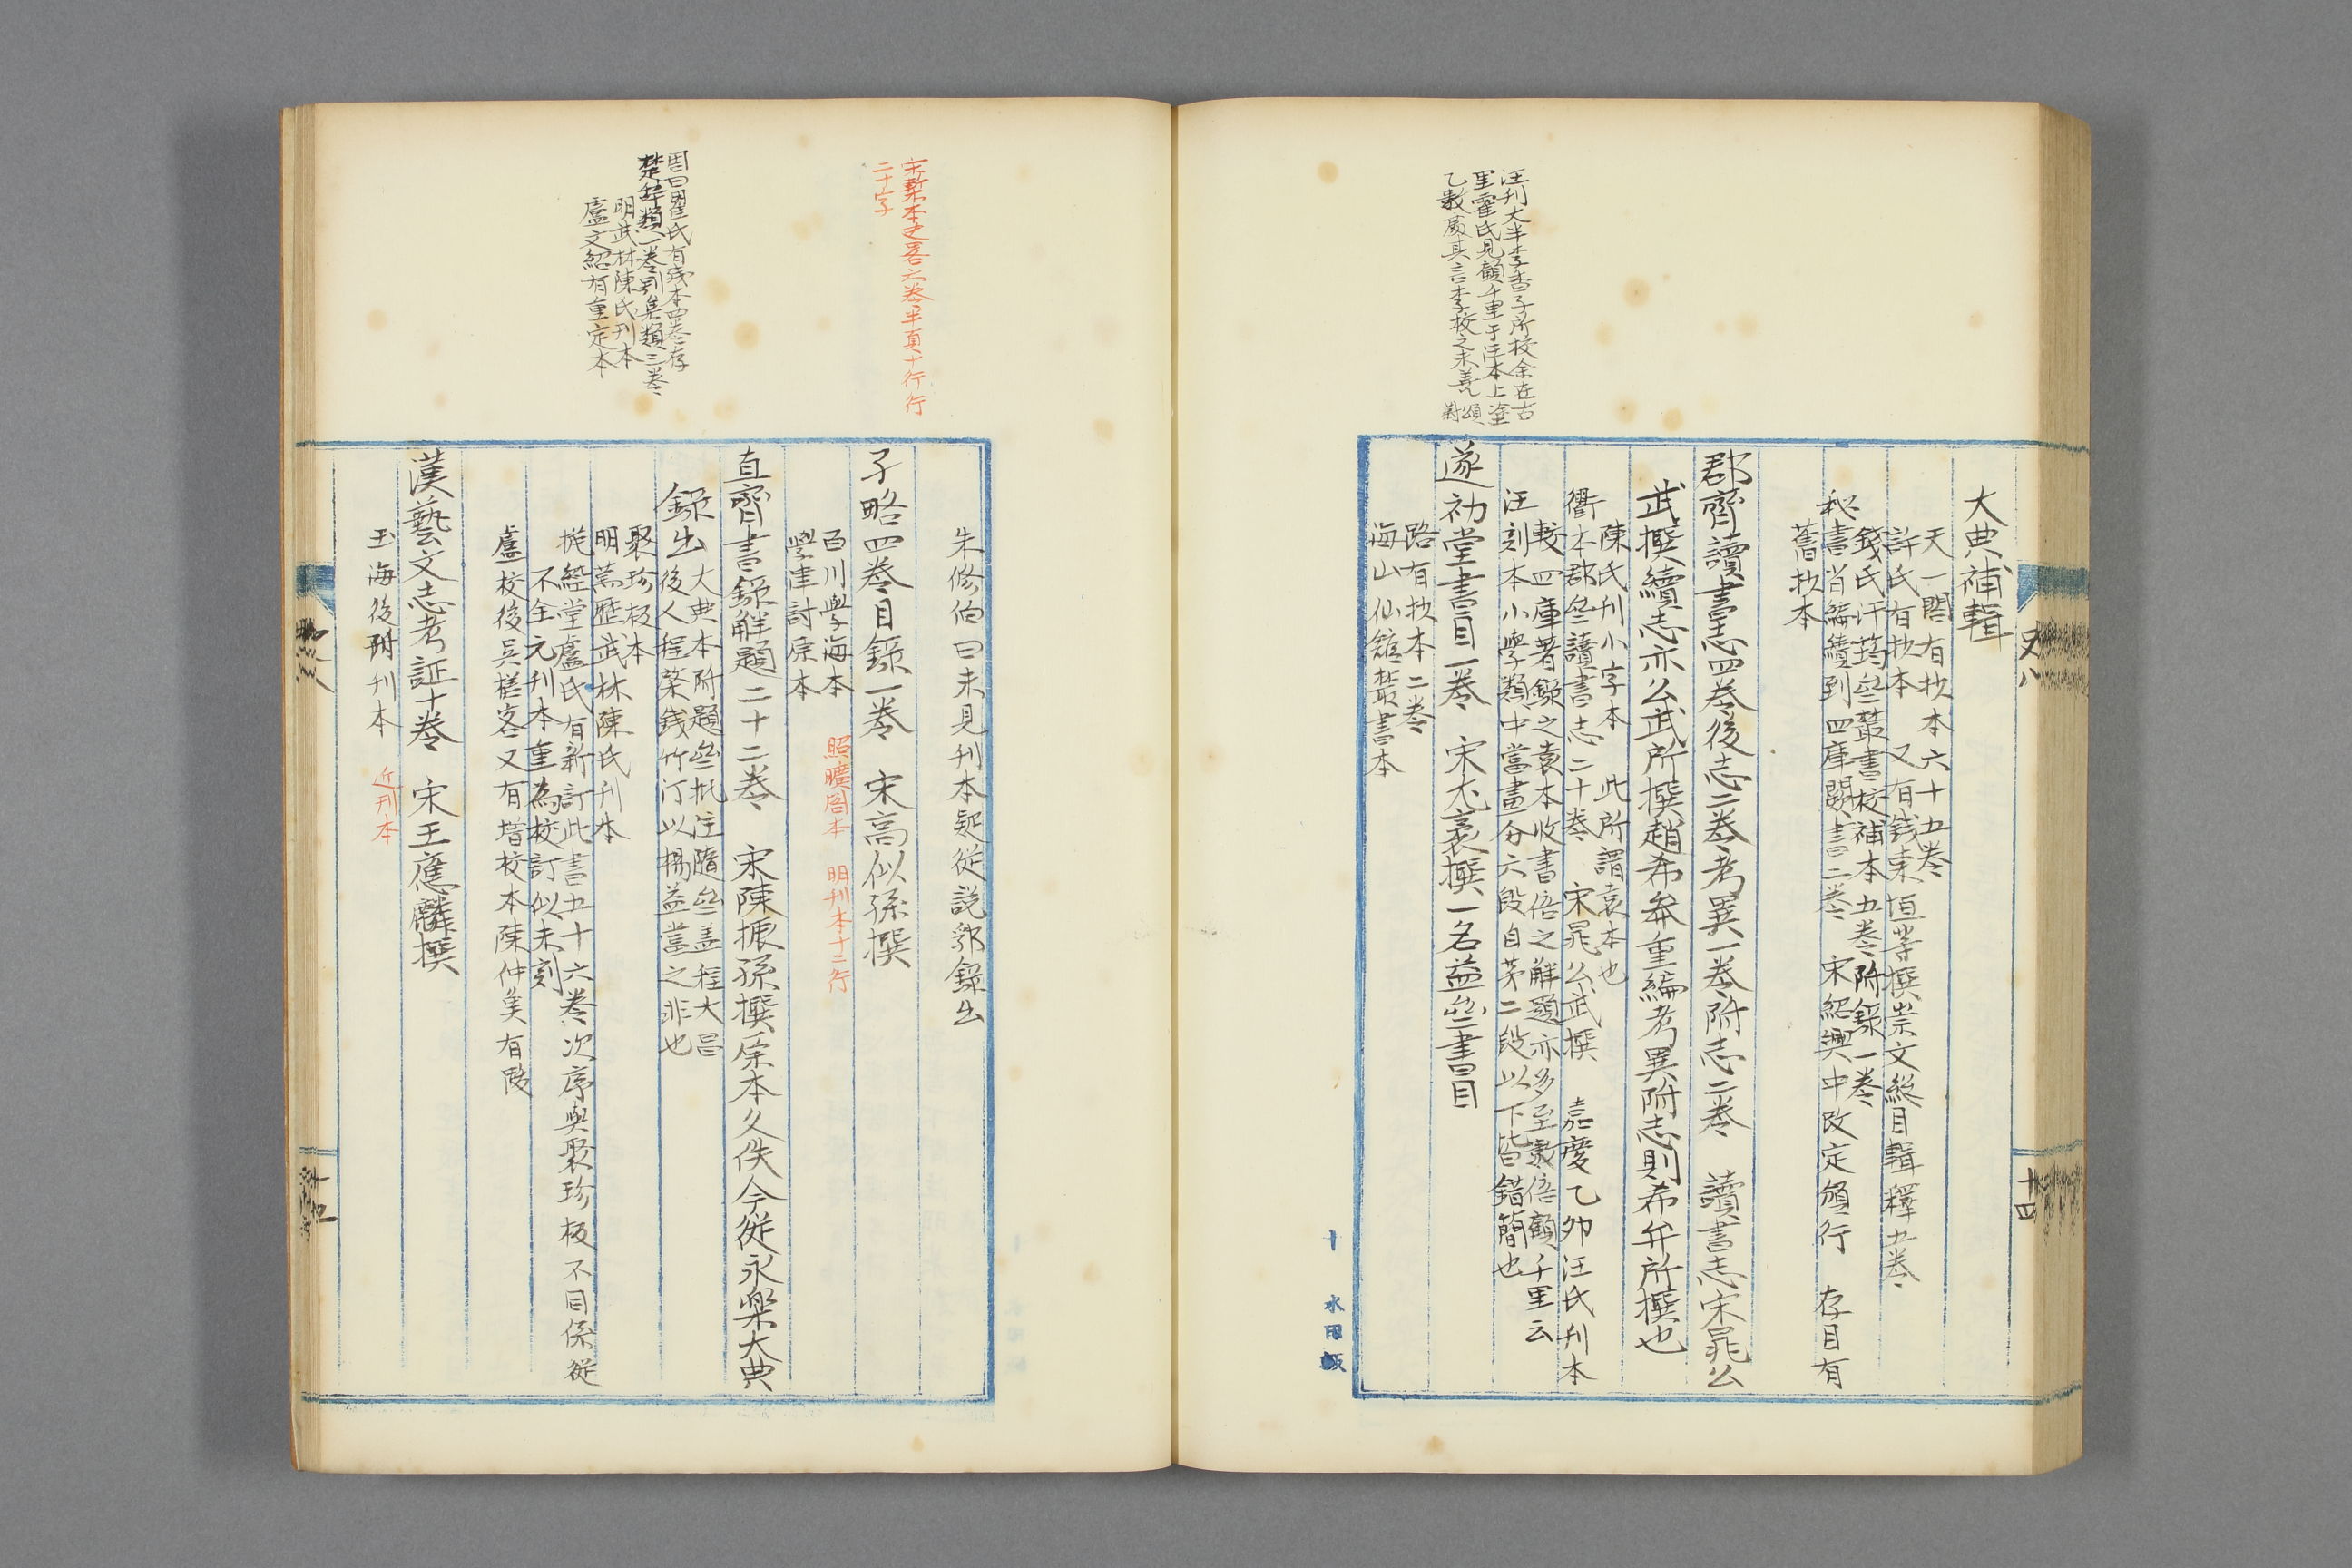 汪刊大半李香子所校余在古
里霍氏見顧千里于汪本上塗
乙數處其言李校之未善
大典補輯
天一閣有抄本六十五卷
許氏有抄本　又有錢東垣等撰崇文総目輯釋五卷
錢氏汗筠叢書校補本五卷附錄一卷
秘書省編續到四庫闕書二卷　宋紹興中改定頒行　存目有
舊抄本
郡齋讀書志四卷後志二卷考異一卷附志二卷　讀書志宋晁公
武撰續志亦公武所撰趙希弁重編考異附志則希弁所撰也
陳氏刊小字本　此所謂袁本也
衢本郡齋讀書志二十卷　宋晁公武撰　嘉慶乙卯汪氏刊本
較四庫著錄之袁本收書倍之解題亦多至數倍顧千里云
汪刻本小學類中當畫分六段自苐二段以下皆錯簡也
遂初堂書目一卷　宋尤袤撰一名益齋書目
路有抄本二卷
海山仙館叢書本
史八
十四
宋槧本史畧六卷半頁十行行
二十字
瞿氏有殘本四卷存
楚辞類一卷別集類三卷
明武林陳氏刊本
盧文紹有重定本
朱修伯曰未見刊本疑従説郛錄出
子略四卷目錄一卷　宋高似孫撰
百川學海本　照曠閣本　明刊本十二行
學津討原本
直齋書錄解題二十二卷　宋陳振孫撰原本久佚今従永樂大典
錄出　大典本附題齋批注隨齋盖程大昌
後人程棨錢竹汀以楊益當之非也
聚珍板本
明萬歷武林陳氏刊本
抱經堂盧氏有新訂此書五十六卷次序與聚珍板不同係従
不全元刊本重為校訂似未刻
盧校後吳槎客又有增校本陳仲魚有跋
漢藝文志考証十卷　宋王應麟撰
玉海後附刊本　近刊本